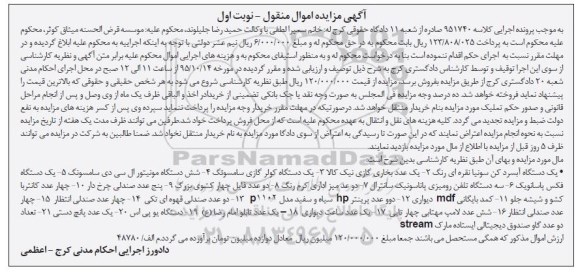 آگهی مزایده اموال منقول - نوبت اول
به موجب پرونده اجرایی کلاسه ۹۵۱۷۴۰ صادره از شعبه ۱۱ دادگاه حقوقی کرج له خانم سمیرا لطفی با وکالت حمید رضا جلیلوند، محکوم علیه: موسسه قرض الحسنه میثاق کوثر، محکوم
علیه محکوم است به پرداخت ۱۲۳/۸۰۸/۰۲۵ ریال بابت محکوم به در حق محکوم له و مبلغ ۶/۰۰۰/۰۰۰ ریال نیم عشر دولتی با توجه به اینکه اجراییه به محکوم علیه ابلاغ گردیده و در
مهلت مقرر نسبت به اجرای حکم اقدام ننموده است بنا به درخواست محکوم له و به منظور استیفای محکوم به و هزینه های اجرایی اموال محکوم علیه برابر متن آگهی و نظریه کارشناسی
از سوی این اجرا توقیف و توسط کارشناس دادگستری کرج به شرح ذیل توصیف و ارزیابی شده و مقرر گردیده در مورخه ۹۵/۱۰/۱۴ از ساعت ۱۱ الی ۱۲ صبح در محل اجرای احکام مدنی
شعبه ۲۰ دادگستری کرج از طریق مزایده بفروش برسد. مزایده از قیمت ۱۲۰/۰۰۰/۰۰۰ ریال طبق نظریه کارشناسی شروع می شود و به هر شخص حقیقی و حقوقی که بالاترین قیمت را
پیشنهاد نماید فروخته خواهد شد. ده درصد وجه مزایده فی المجلس به صورت وجه نقد یا چک بانکی تضمینی از خریدار اخذ و الباقی ظرف یک ماه از وی وصل و پس از انجام مراحل
قانونی و صدور حکم تملیک مورد مزایده بنام خریدار منتقل خواهد شد. درصورتیکه در مهلت مقرر خریدار وجه مزایده را پرداخت ننماید سپرده وی پس از کسر هزینه های مزایده به نفع
دولت ضبط و مزایده تجدید می گردد. کلیه هزینه های نقل و انتقال به عهده محکوم علیه است که از محل فروش پرداخت خواد شد. طرفین می توانند ظرف مدت یک هفته از تاریخ مزایده
نسبت به نحوه انجام مزایده اعتراض نمایند که در این صورت تا رسیدگی به اعتراض از سوی دادگا مورد مزایده به نام خریدار منتقل نخواد شد. ضمنا طالبین به شرکت در مزایده می توانند
ظرف ۵ روز قبل از مزایده با اطلاع از مال مورد مزایده بازدید نمایند.
مال مورد مزایده و بهای آن طبق نظریه کارشناسی بدین شرح است
- یک دستگاه آبسرد کن سونیا نقره ای رنگ ۲- یک عدد بخاری گازی نیک کالا ۳- یک دستگاه کولر گازی سامسونگ ۴- شش دستگاه مونیتور ال سی دی سامسونگ ۵- یک دستگاه
فکس پاناسونیک ۶- سه دستگاه تلفن رومیزی پاناسونیک سانترال ۷- دو عدد میز اداری کرم رنگ ۸- دو عدد فایل چهار کشوی بزرگ ۹- پنج عدد صندلی چرخ دار ۱۰- چهار عدد کانتر با
کشو و شیشه جلو ۱۱- کمد بایگانی mdf دیواری ۱۲- دوو عدد پرینتر hp سیاه و سفید مدل p۱۱۰۲ ۱۳- دو عدد صندلی قهوه ای تکی ۱۴- چهار عدد صندلی انتظار ۱۵- چهار
عدد صندلی انتظار ۱۶- شش عدد لامپ مهتابی چهار تایی ۱۷- یک عدد ساعت دیواری ۱۸- یک عدد تابلو امام رضا(ع) ۱۹- دستگاه یو پی اس ۲۰- یک عدد پانچ دستی ۲۱- تعداد
دو عدد گاو صندوق دیجیتالی ایستاده مارک stream
ارزش اموال مذکور که همگی مستحصل می باشند جمعا مبلغ ۱۲۰/۰۰۰/۰۰۰ میلیون ریال معادل دوازده میلیون تومان برآورده می گردد. م الف/ ۴۸۷۸۰
دادورز اجرایی احکام مدنی کرج - اعظمی
ParsNamadData
۰۲۱-۸۸۳۴۹۶۷۰-۵